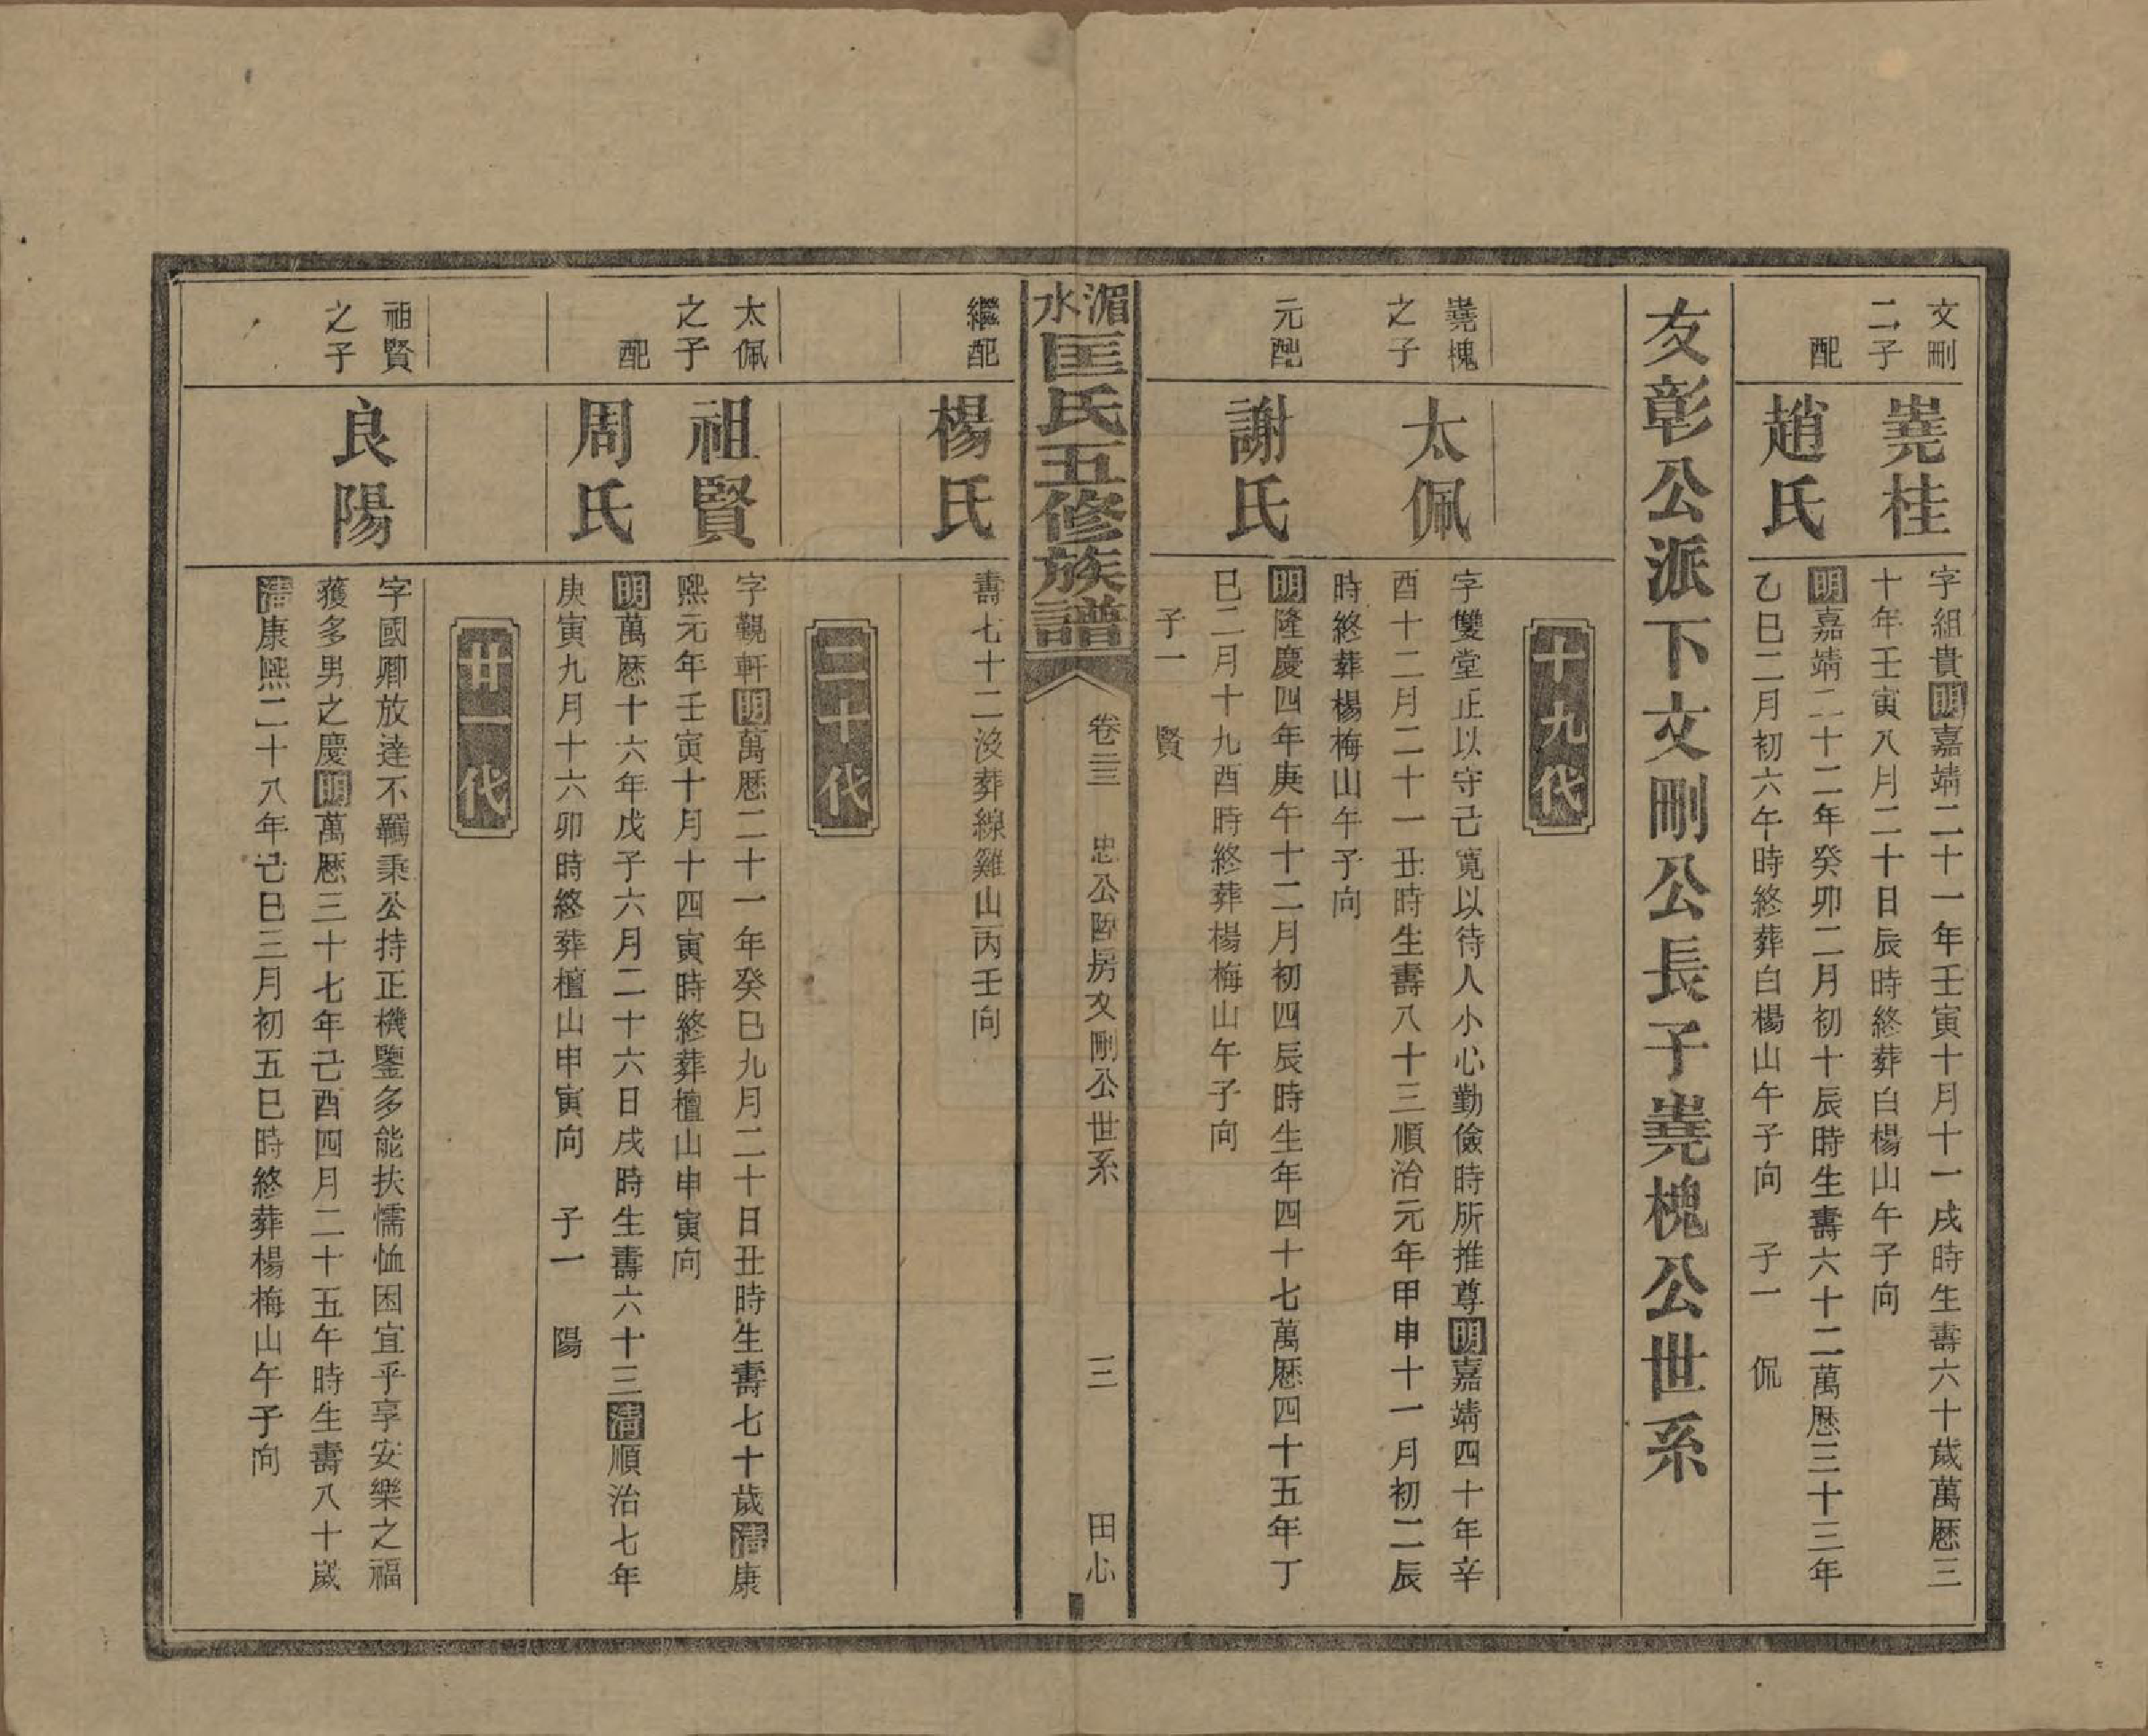 文剛
二子
嶤桂
字組貴明嘉靖二十一年壬寅十月十一戌時生壽六十歲萬厯三
十年壬寅八月二十日辰時終葬白楊山午子向
配
趙氏
明嘉靖二十二年癸卯二月初十辰時生壽六十二萬厯三十三年
乙巳二月初六午時終葬白楊山午子向 子一 侃
友彰公派下文剛公長子嶤槐公世系
十九代
嶤槐
之子
太佩
字雙堂正以守己寬以待人小心勤儉時所推尊明嘉靖四十年辛
酉十二月二十一丑時生壽八十三順治元年甲申十一月初二辰
時終葬楊梅山午子向
元配
謝氏
明隆慶四年庚午十二月初四辰時生年四十七萬厯四十五年丁
巳二月十九酉時終葬楊梅山午子向
子一 賢
湄水匡氏五修族譜
卷三三 忠公陞房文剛公世系 三 田心
繼配
楊氏
壽七十二沒葬線雞山丙壬向
二十代
太佩
之子
祖賢
字觀軒明萬厯二十一年癸巳九月二十日丑時生壽七十歲清康
熙元年壬寅十月十四寅時終葬檀山申寅向
配
周氏
明萬厯十六年戊子六月二十六日戌時生壽六十三清順治七年
庚寅九月十六卯時終葬檀山申寅向 子一 陽
廿一代
祖賢
之子
良陽
字國卿放達不羈秉公持正機鑒多能扶懦恤困宜乎享安樂之福
獲多男之慶明萬厯三十七年己酉四月二十五午時生壽八十歲
清康熙二十八年己巳三月初五巳時終葬楊梅山午子向